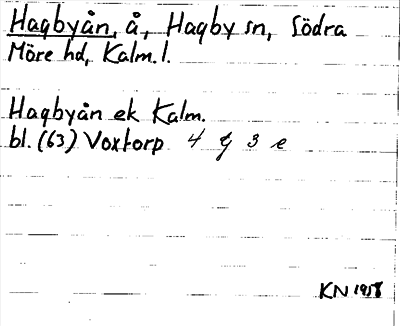 Hagbyån, å, Hagby sn, Södra
Möre hd, Kalm. l.
Hagbyån ek Kalm.
bl. (63) Voxtorp 4 G 3 e
KN 1958